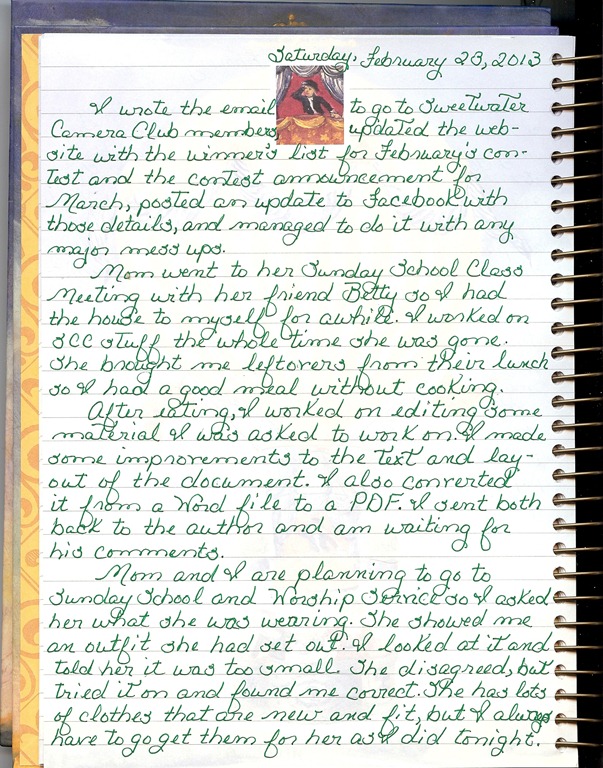 Saturday, February 23, 2013
I wrote the email to go to Sweetwater
Camera Club members, updated the web-
site with the winner's list for February's con-
test and the contest announcement for
March, posted an update to Facebook with
those details, and managed to do it with any
major mess ups.
Mom went to her Sunday School Class
Meeting with her friend Betty so I had
the house to myself for awhile. I worked on
SCC stuff the whole time she was gone.
She brought me leftovers from their lunch
so I had a good meal without cooking.
After eating, I worked on editing some
material I was asked to work on. I made
some improvements to the text and lay-
out of the document. I also converted
it from a Word file to a PDF. I sent both
back to the author and am waiting for
his comments.
Mom and I are planning to go to
Sunday School and Worship Service so I asked
her what she was wearing. She showed me
an outfit she had set out. I looked at it and
told her it was too small. She disagreed, but
tried it on and found me correct. She has lots
of clothes that are new and fit, but I always
have to go get them for her as I did tonight.